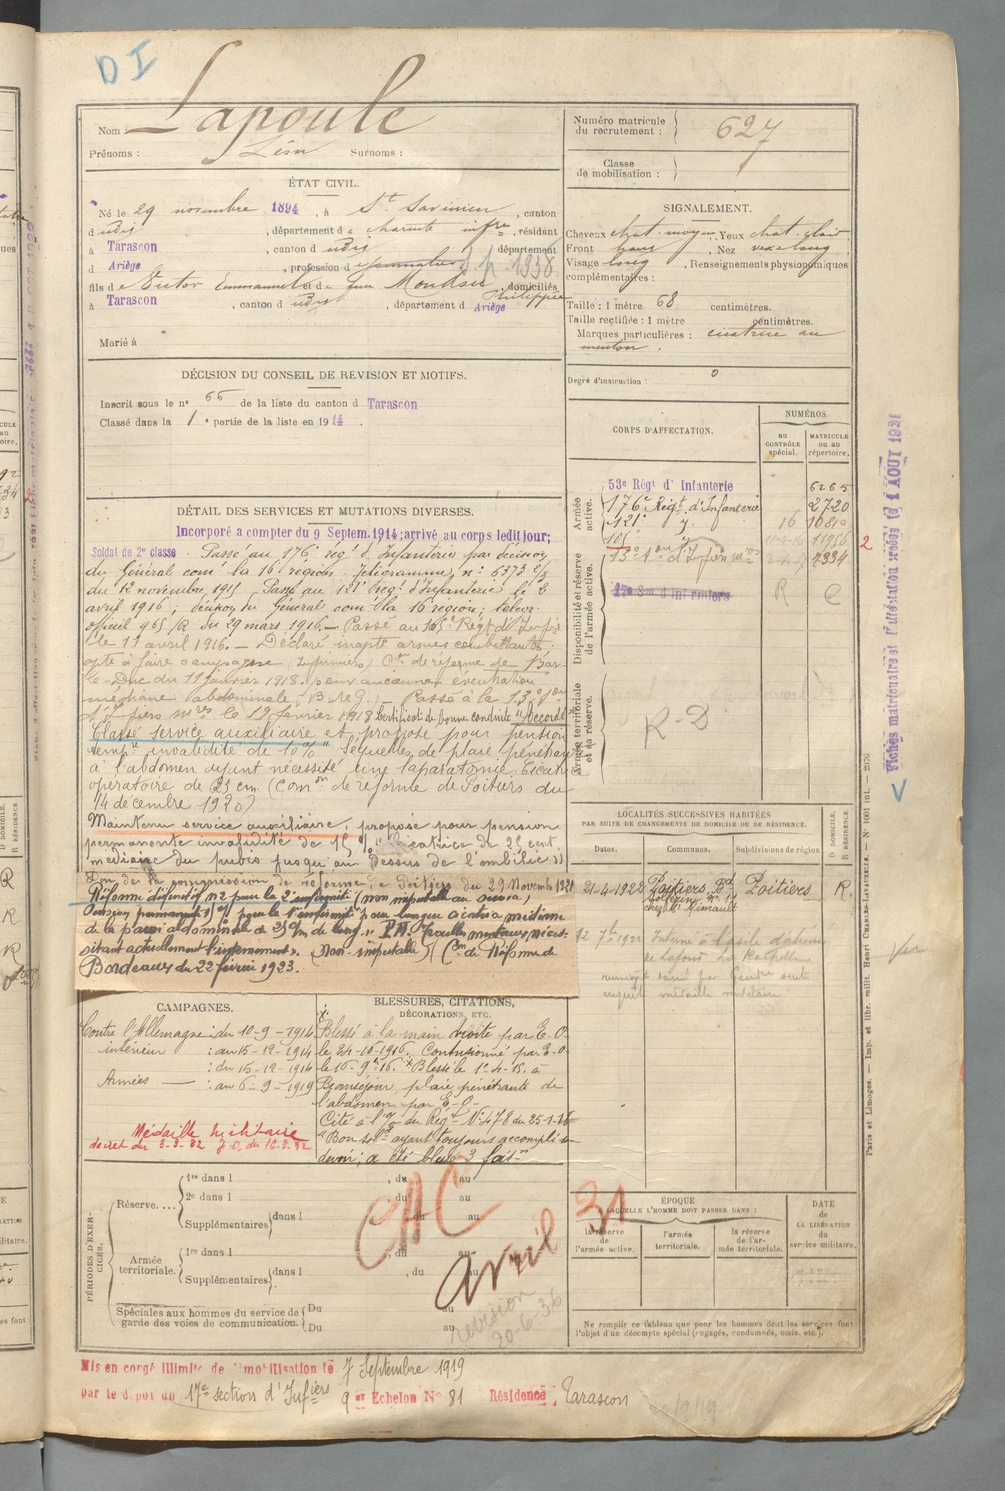 D I
Nom : Lapoule
Prénoms : Léon Surnoms :
Numéro matricule du recrutement : 627
Classe de mobilisation :
ÉTAT CIVIL.
Né le 29 novembre 1894, à St Savinien, canton
d udis, département de Charente infre, résidant
à Tarascon, canton d udis, département
d Ariège, profession d
fils de Victor Emmanuel et de feu Philippine, domiciliés
à Tarascon, canton d udis, département d Ariège
Marié à
SIGNALEMENT.
Cheveux chat. moyen. Yeux chat. clair
Front, Nez
Visage long, Renseignements physionomiques
complémentaires :
Taille : 1 mètre 68 centimètres.
Taille rectifiée : 1 mètre centimètres.
Marques particulières : cicatrice au
menton.
Degré d'instruction : 0
DÉCISION DU CONSEIL DE REVISION ET MOTIFS.
Inscrit sous le n° 66 de la liste du canton d Tarascon
Classé dans la 1e partie de la liste en 1914.
CORPS D'AFFECTATION.
NUMÉROS
au CONTRÔLE spécial.
MATRICULE ou au répertoire.
Armée active.
53e Régt d'Infanterie 6265
176e Régt d'Infanterie 2720
121e 16 10810
105 11-4-16 11956 2
13e Son d'Infiers mres 7334
Disponibilité et réserve de l'armée active.
17e Son d'Infirmiers R C
Armée territoriale et sa réserve.
R-D
DÉTAIL DES SERVICES ET MUTATIONS DIVERSES.
Incorporé a compter du 9 Septem. 1914; arrivé au corps ledit jour;
Soldat de 2e classe. Passé au 176e régt d'Infanterie par décision
du Général comt la 16e région, télégramme n° 6373 2/3
du 12 novembre 1915. Passé au 121e régt d'Infanterie le 2
avril 1916; décision du Général comt la 16e région; télégr.
officiel 965/R du 29 mars 1916.- Passé au 105e Régt d'Infie
le 11 avril 1916.- Déclaré inapte armes combattantes
apte à faire campagne (Infirmiers) Con de réforme de Bar-
le-Duc du 11 janvier 1918. pour ancienne éventration
médiane abdominale, B. de G.- Passé à la 13e Son
d'Infiers mres le 19 février 1918 Certificat de bonne conduite "Accordé"
Classé service auxiliaire et proposé pour pension
tempre invalidité de 10 % "Séquelles de plaie pénétrante
à l'abdomen ayant nécessité une laparatomie. Cicatrice
opératoire de 25 cm. (Comon de réforme de Poitiers du
14 décembre 1920)
Maintenu service auxiliaire, proposé pour pension
permanente invalidité de 15 % Cicatrice de 25 cent.
médiane du pubis jusqu'au dessus de l'ombilic))
de la commission de réforme de Poitiers du 29 Novembre 1921
Réformé définitif n°2 pour la 2e infirmité (non imputable au service)
Pension permanente pour la 1e infirmité pour longue cicatrice médiane
de la paroi abdominale de 25 c/m de long. 2e P.M. troubles mentaux néces-
sitant actuellement l'internement. (Non imputable) (Con de Réforme de
Bordeaux du 22 février 1923.
LOCALITÉS SUCCESSIVES HABITÉES
PAR SUITE DE CHANGEMENTS DE DOMICILE OU DE RÉSIDENCE.
Dates. Communes. Subdivisions de région D DOMICILE. R RÉSIDENCE
21-4-1922 Poitiers, Bd Poitiers R.
12 7bre 1922 Interné à l'asile d'aliénés
de Lafond La Rochelle
enquête médaille militaire
CAMPAGNES.
Contre l'Allemagne : du 10-9-1914
intérieur : au 15-12-1914
: du 15-12-1914
Armées — : au 6-9-1919
Médaille militaire
décret du 3-3-32 J.O. du 10-3-32
BLESSURES, CITATIONS, DÉCORATIONS, ETC.
Blessé à la main droite par E-O-
le 24-10-1916. Contusionné par E-O-
le 16-9bre 16. Blessé le 1e-4-15. à
Beauséjour, plaie pénétrante de
l'abdomen par E-O-
Cité à l'o/ du Régt N° 478 du 25-1-18
"Bon sold. ayant toujours accompli son
devoir; a été blessé 3 fois"
PÉRIODES D'EXERCICES.
Réserve....
1re dans l , du au
2e dans l du au
Supplémentaires dans l du au
Armée territoriale.
1re dans l , du au
Supplémentaires dans l , du au
Spéciales aux hommes du service de garde des voies de communication.
Du au
Du au
CAC
Avril 31
revision
20-6-36
ÉPOQUE
A LAQUELLE L'HOMME DOIT PASSER DANS :
la réserve de l'armée active.
l'armée territoriale.
la réserve de l'armée territoriale.
DATE de LA LIBÉRATION du service militaire.
Ne remplir ce tableau que pour les hommes dont les services font
l'objet d'un décompte spécial (engagés, condamnés, omis, etc.).
Mis en congé illimité de démobilisation le 7 Septembre 1919
par le dépôt du 17e section d'Infiers 9e Echelon N° 81 Résidence : Tarascon
Paris et Limoges. — Imp. et libr. milit. Henri CHARLES-LAVAUZELLE. — N° 1001 int. — 2976